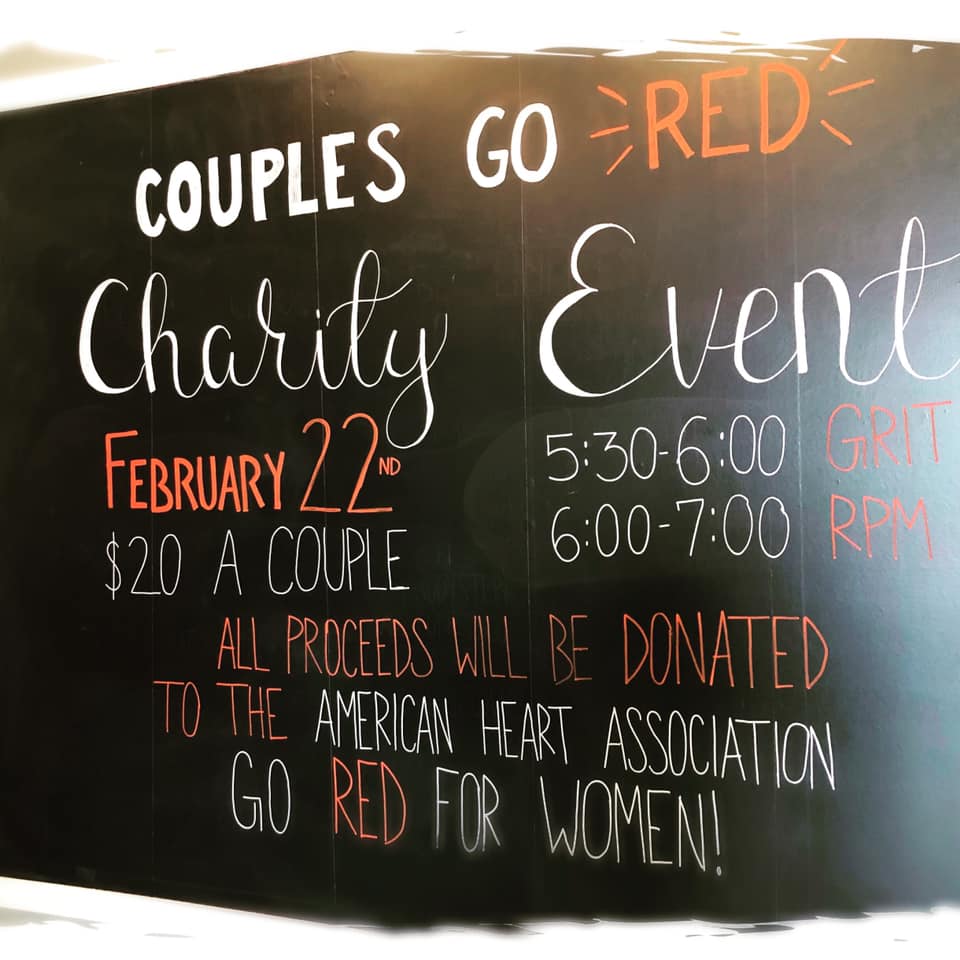 COUPLES GO RED
Charity Event
FEBRUARY 22ND
$20 A COUPLE
5:30-6:00 GRIT
6:00-7:00 RPM
ALL PROCEEDS WILL BE DONATED
TO THE AMERICAN HEART ASSOCIATION
GO RED FOR WOMEN!